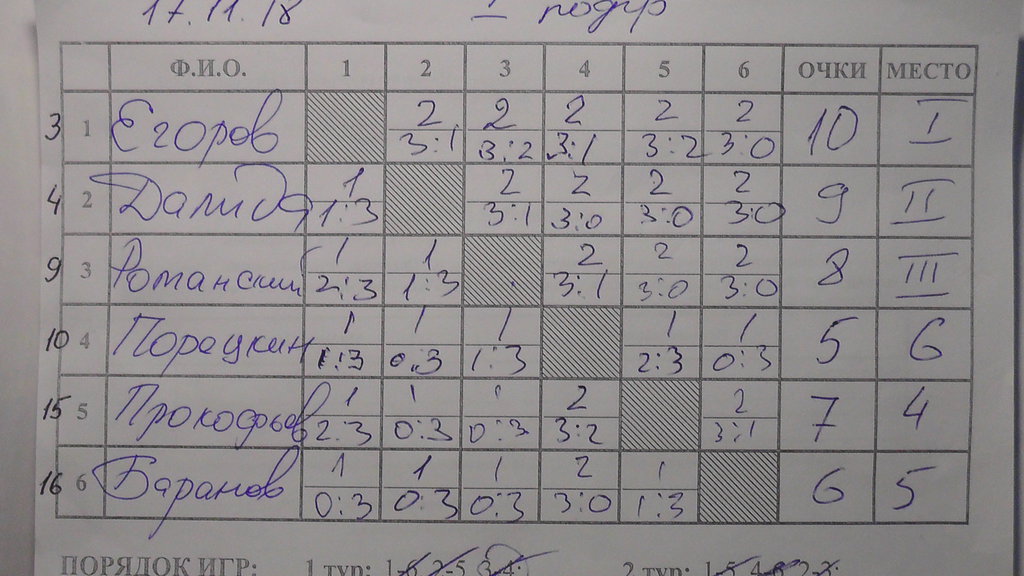 17.11.18 I подгр
Ф.И.О. 1 2 3 4 5 6 ОЧКИ МЕСТО
3 1 Егоров 2 3:1 2 3:2 2 3:1 2 3:2 2 3:0 10 I
4 2 Далида 1 1:3 2 3:1 2 3:0 2 3:0 2 3:0 9 II
9 3 Романский 1 2:3 1 1:3 2 3:1 2 3:0 2 3:0 8 III
10 4 Порецкин 1 1:3 1 0:3 1 1:3 1 2:3 1 0:3 5 6
15 5 Прокофьев 1 2:3 1 0:3 1 0:3 2 3:2 2 3:1 7 4
16 6 Баранов 1 0:3 1 0:3 1 0:3 2 3:0 1 1:3 6 5
ПОРЯДОК ИГР: 1 тур: 1-6 2-5 3-4; 2 тур: 1-5 4-6 2-3;